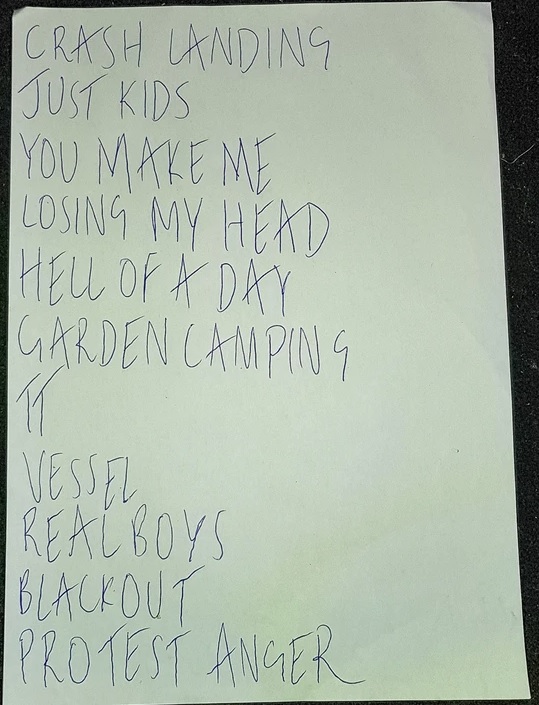 CRASH LANDING
JUST KIDS
YOU MAKE ME
LOSING MY HEAD
HELL OF A DAY
GARDEN CAMPING
TT
VESSEL
REAL BOYS
BLACKOUT
PROTEST ANGER